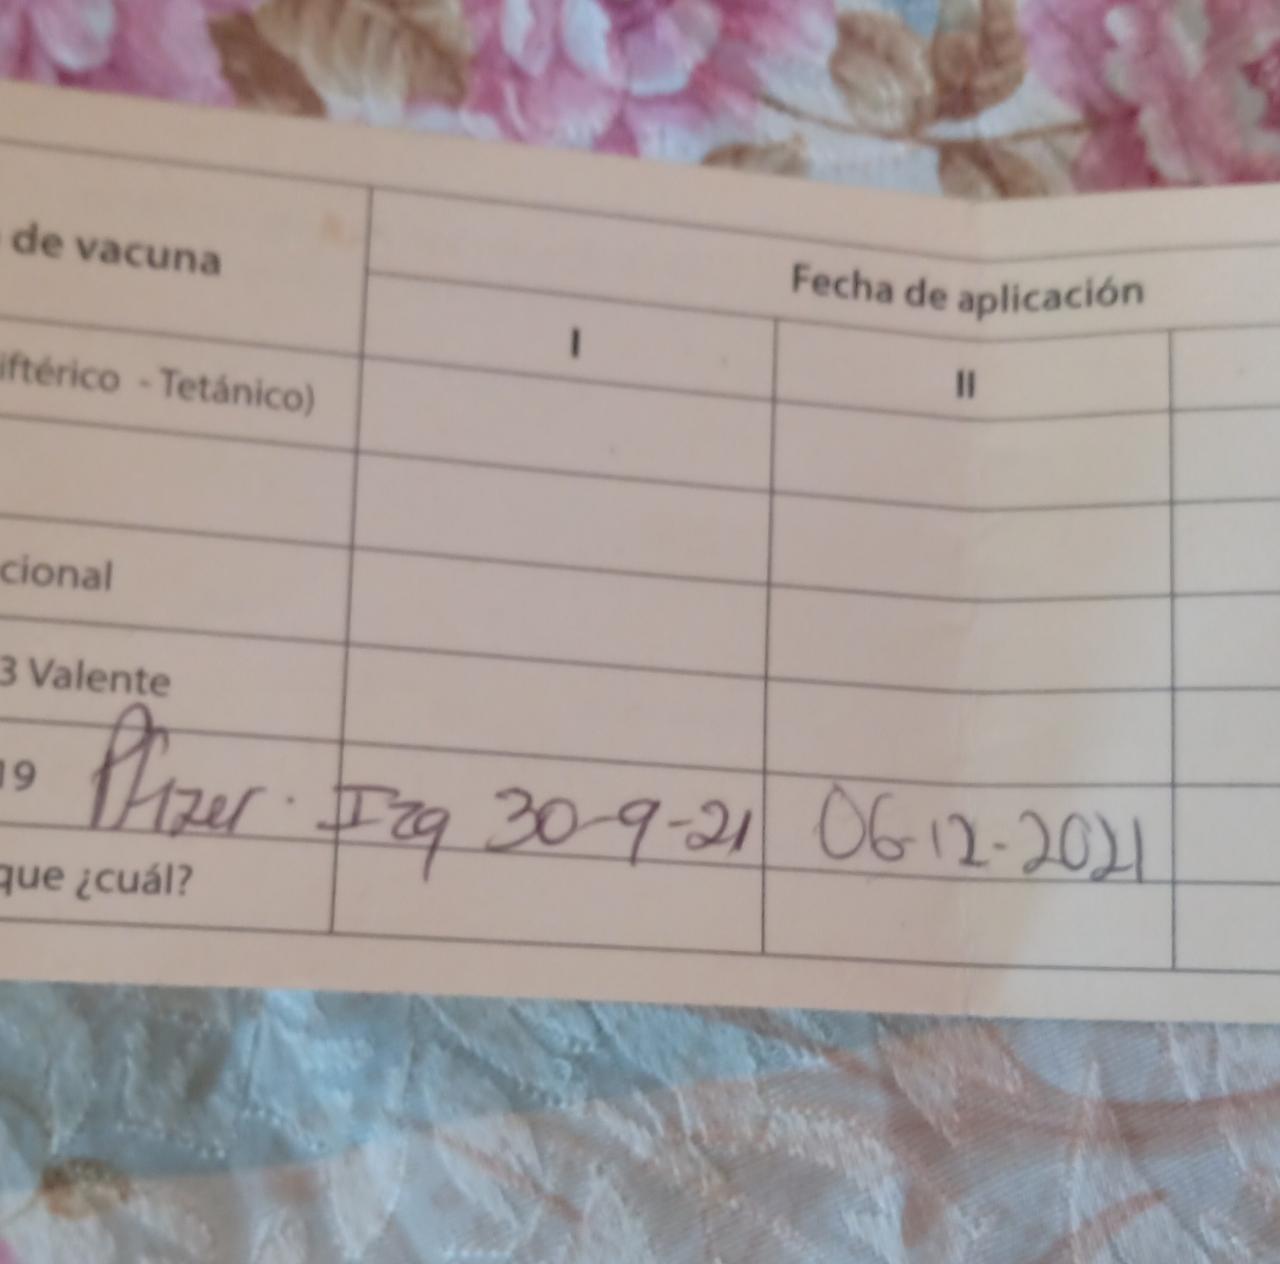 de vacuna
Fecha de aplicación
I
II
iftérico - Tetánico)
cional
3 Valente
19 Pfizer. Izq 30-9-21 06-12-2021
que ¿cuál?